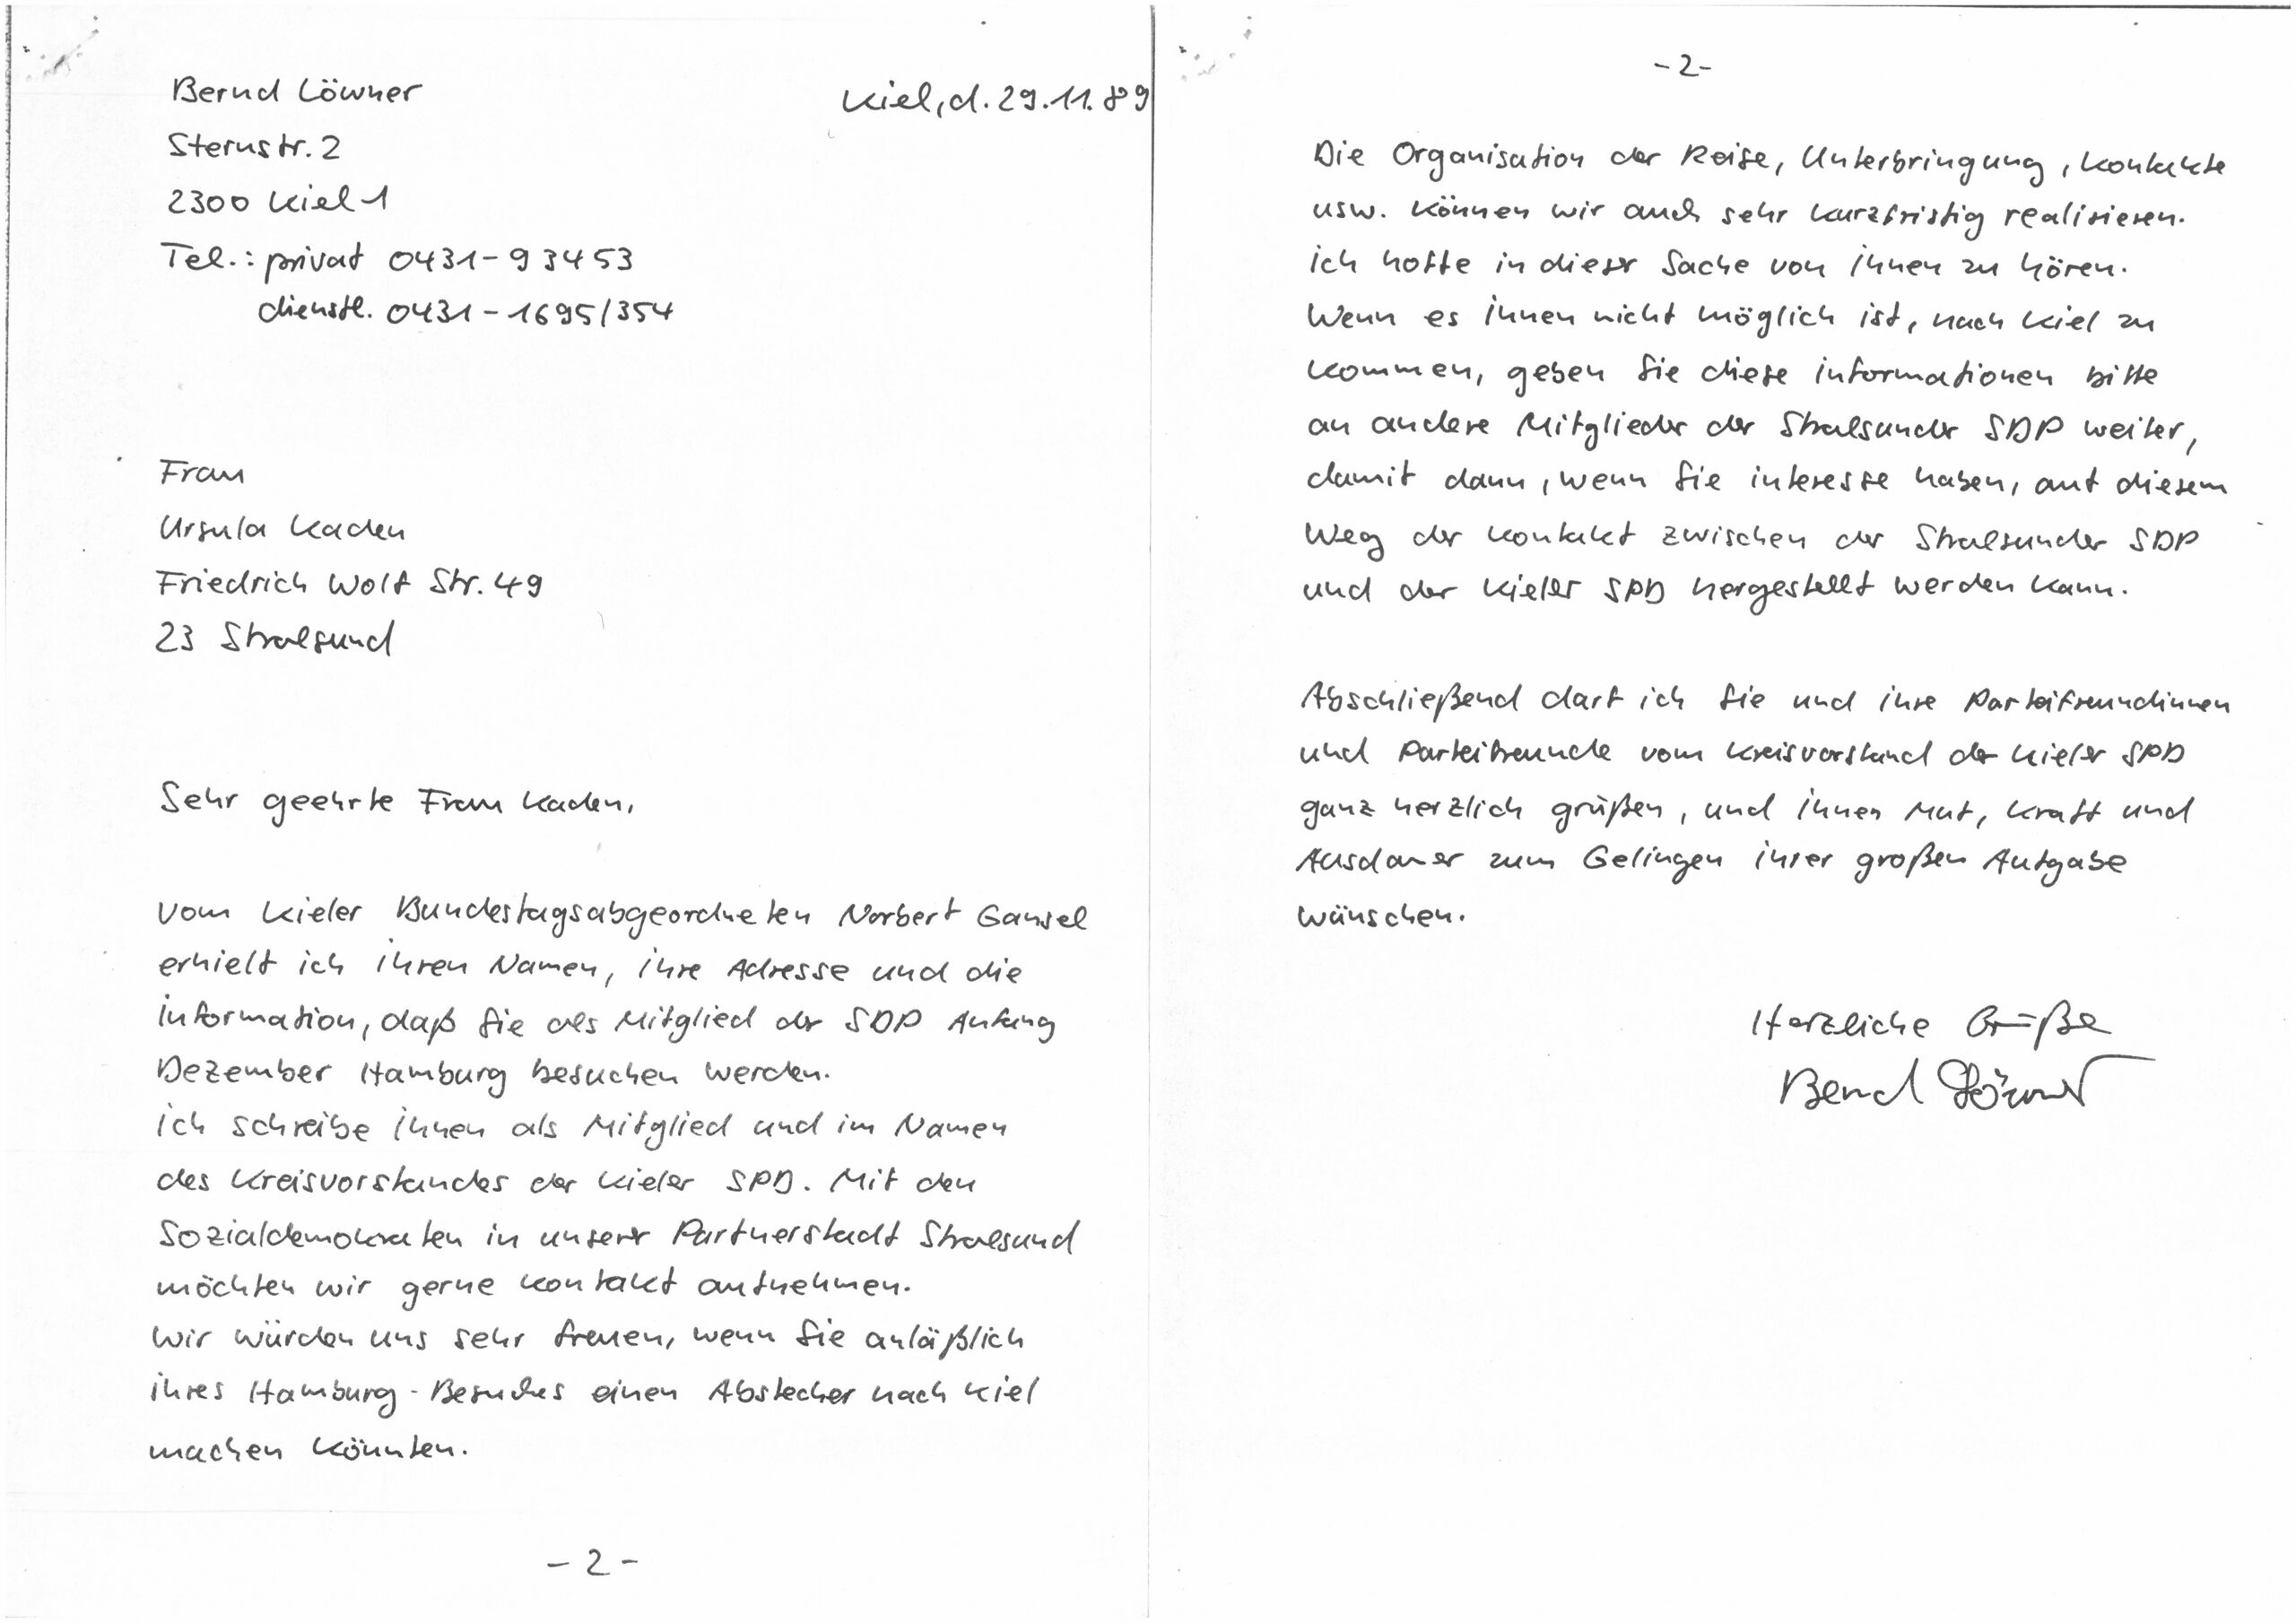 Bernd Löwner
Kiel, d. 29.11.89
Sternstr. 2
2300 Kiel 1
Tel.: privat 0431-93453
dienstl. 0431-1695/354
Frau
Ursula Kaden
Friedrich Wolf Str. 49
23 Stralsund
Sehr geehrte Frau Kaden,
vom Kieler Bundestagsabgeordneten Norbert Gansel
erhielt ich ihren Namen, ihre Adresse und die
Information, daß Sie als Mitglied der SDP Anfang
Dezember Hamburg besuchen werden.
Ich schreibe Ihnen als Mitglied und im Namen
des Kreisvorstandes der Kieler SPD. Mit den
Sozialdemokraten in unserer Partnerstadt Stralsund
möchten wir gerne Kontakt aufnehmen.
Wir würden uns sehr freuen, wenn Sie anläßlich
ihres Hamburg-Besuches einen Abstecher nach Kiel
machen könnten.
- 2 -
- 2 -
Die Organisation der Reise, Unterbringung, Kontakte
usw. können wir auch sehr kurzfristig realisieren.
Ich hoffe in dieser Sache von Ihnen zu hören.
Wenn es Ihnen nicht möglich ist, nach Kiel zu
kommen, geben Sie diese Informationen bitte
an andere Mitglieder der Stralsunder SDP weiter,
damit dann, wenn Sie Interesse haben, auf diesem
Weg der Kontakt zwischen der Stralsunder SDP
und der Kieler SPD hergestellt werden kann.
Abschließend darf ich Sie und ihre Parteifreundinnen
und Parteifreunde vom Kreisvorstand der Kieler SPD
ganz herzlich grüßen, und Ihnen Mut, Kraft und
Ausdauer zum Gelingen ihrer großen Aufgabe
wünschen.
Herzliche Grüße
Bernd Löwner